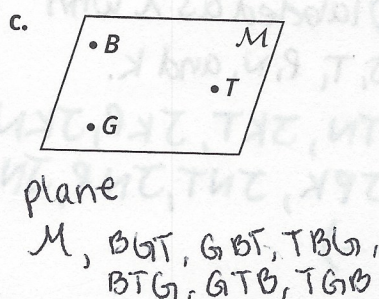 c.
B
M
T
G
plane
M, BGT, GBT, TBG,
BTG, GTB, TGB